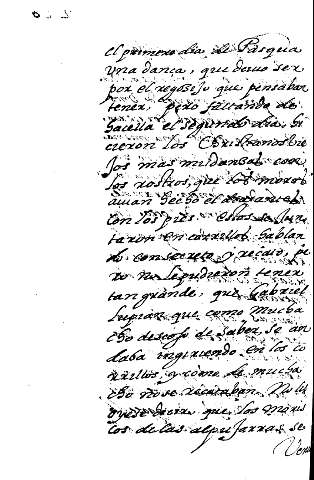 el primero dia de Pasqua
una dança, que devio ser
por el regosijo que pensaban
tener, pero faltando de
hacella el segundo dia, hi
cieron los Christianos vie
jos mas mudanças con
los rostros, que los moros
avian hecho el
con los pies. ellos se jun
taron en corrillos hablan
do con secreto y recato, pe
ro no le pudieron tener
tan grande, que Gabriel
Lupian que como mucha
cho deseoso de saber, se an
daba ingiriendo en los co
rrillos, y como de mucha
cho no se recataban. No li
que los moris
cos de las alpujarras se
Ven